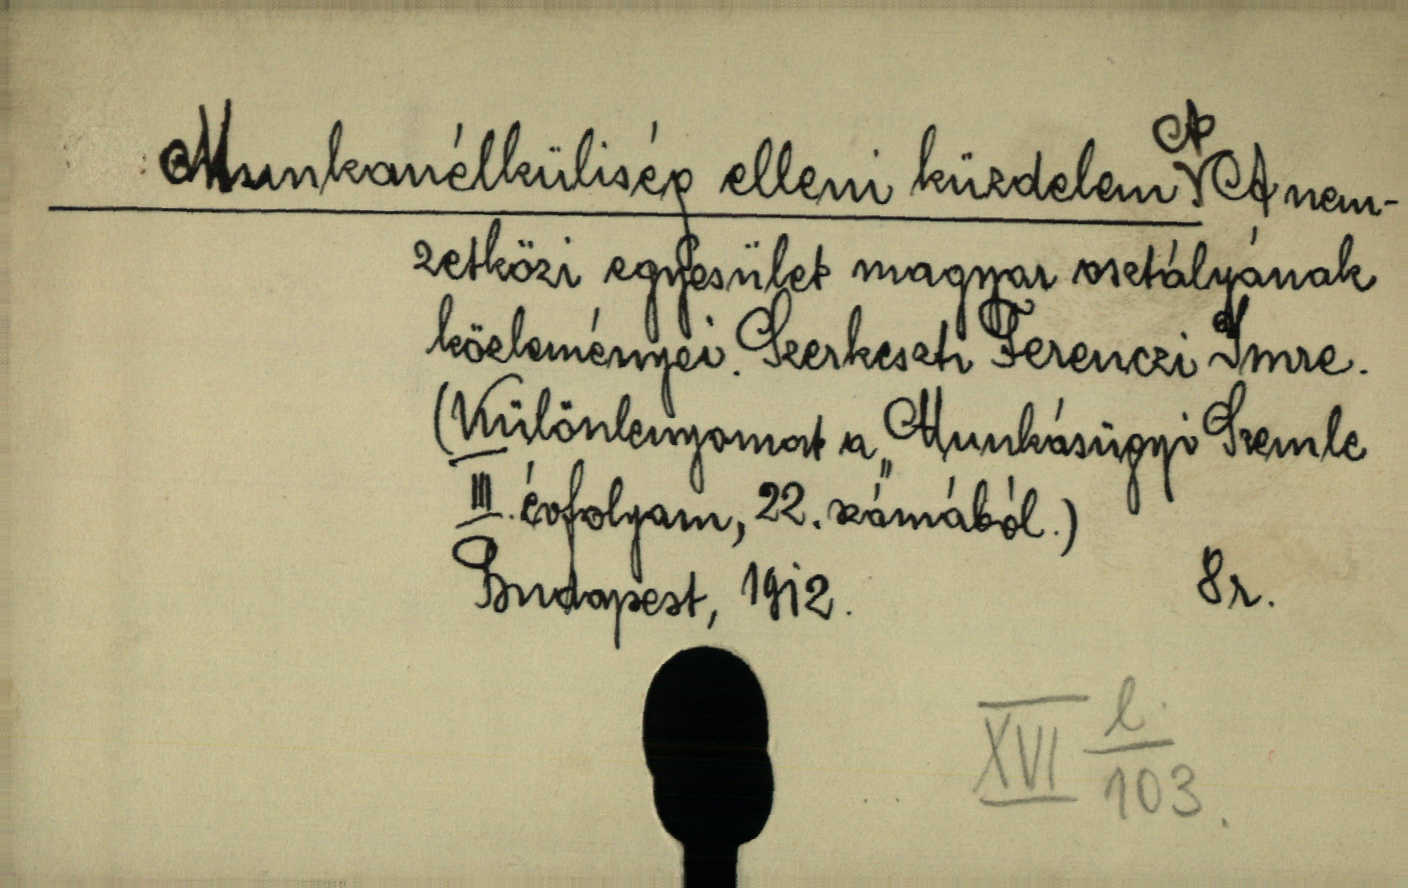 Munkanélküliség elleni küzdelem A A nem-
zetközi egyesület magyar osztályának
közleményei. Szerkeszti Ferenczi Imre.
(Különlenyomat a „Munkásügyi Szemle
III. évfolyam, 22. számából.)
Budapest, 1912. 8r.
XVI l. / 103.